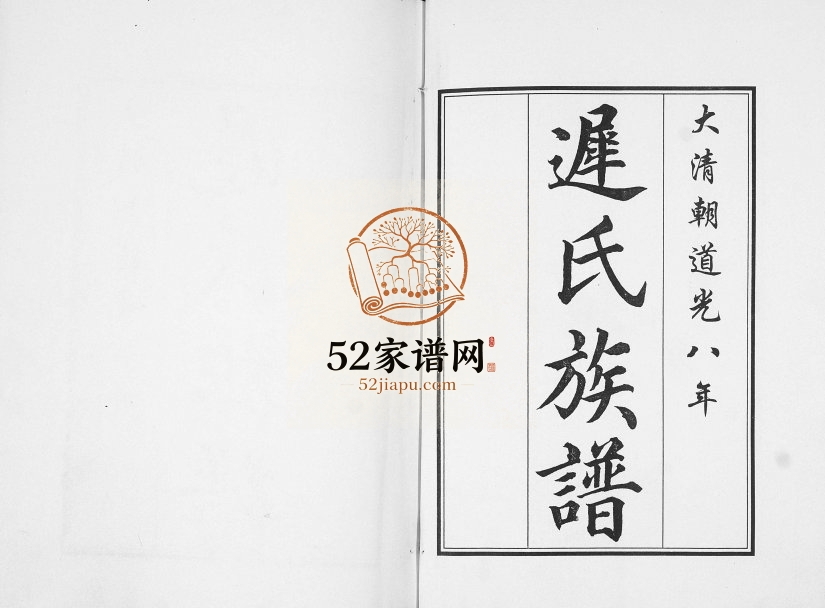 大清朝道光八年
遲氏族譜
52家谱网
52jiapu.com